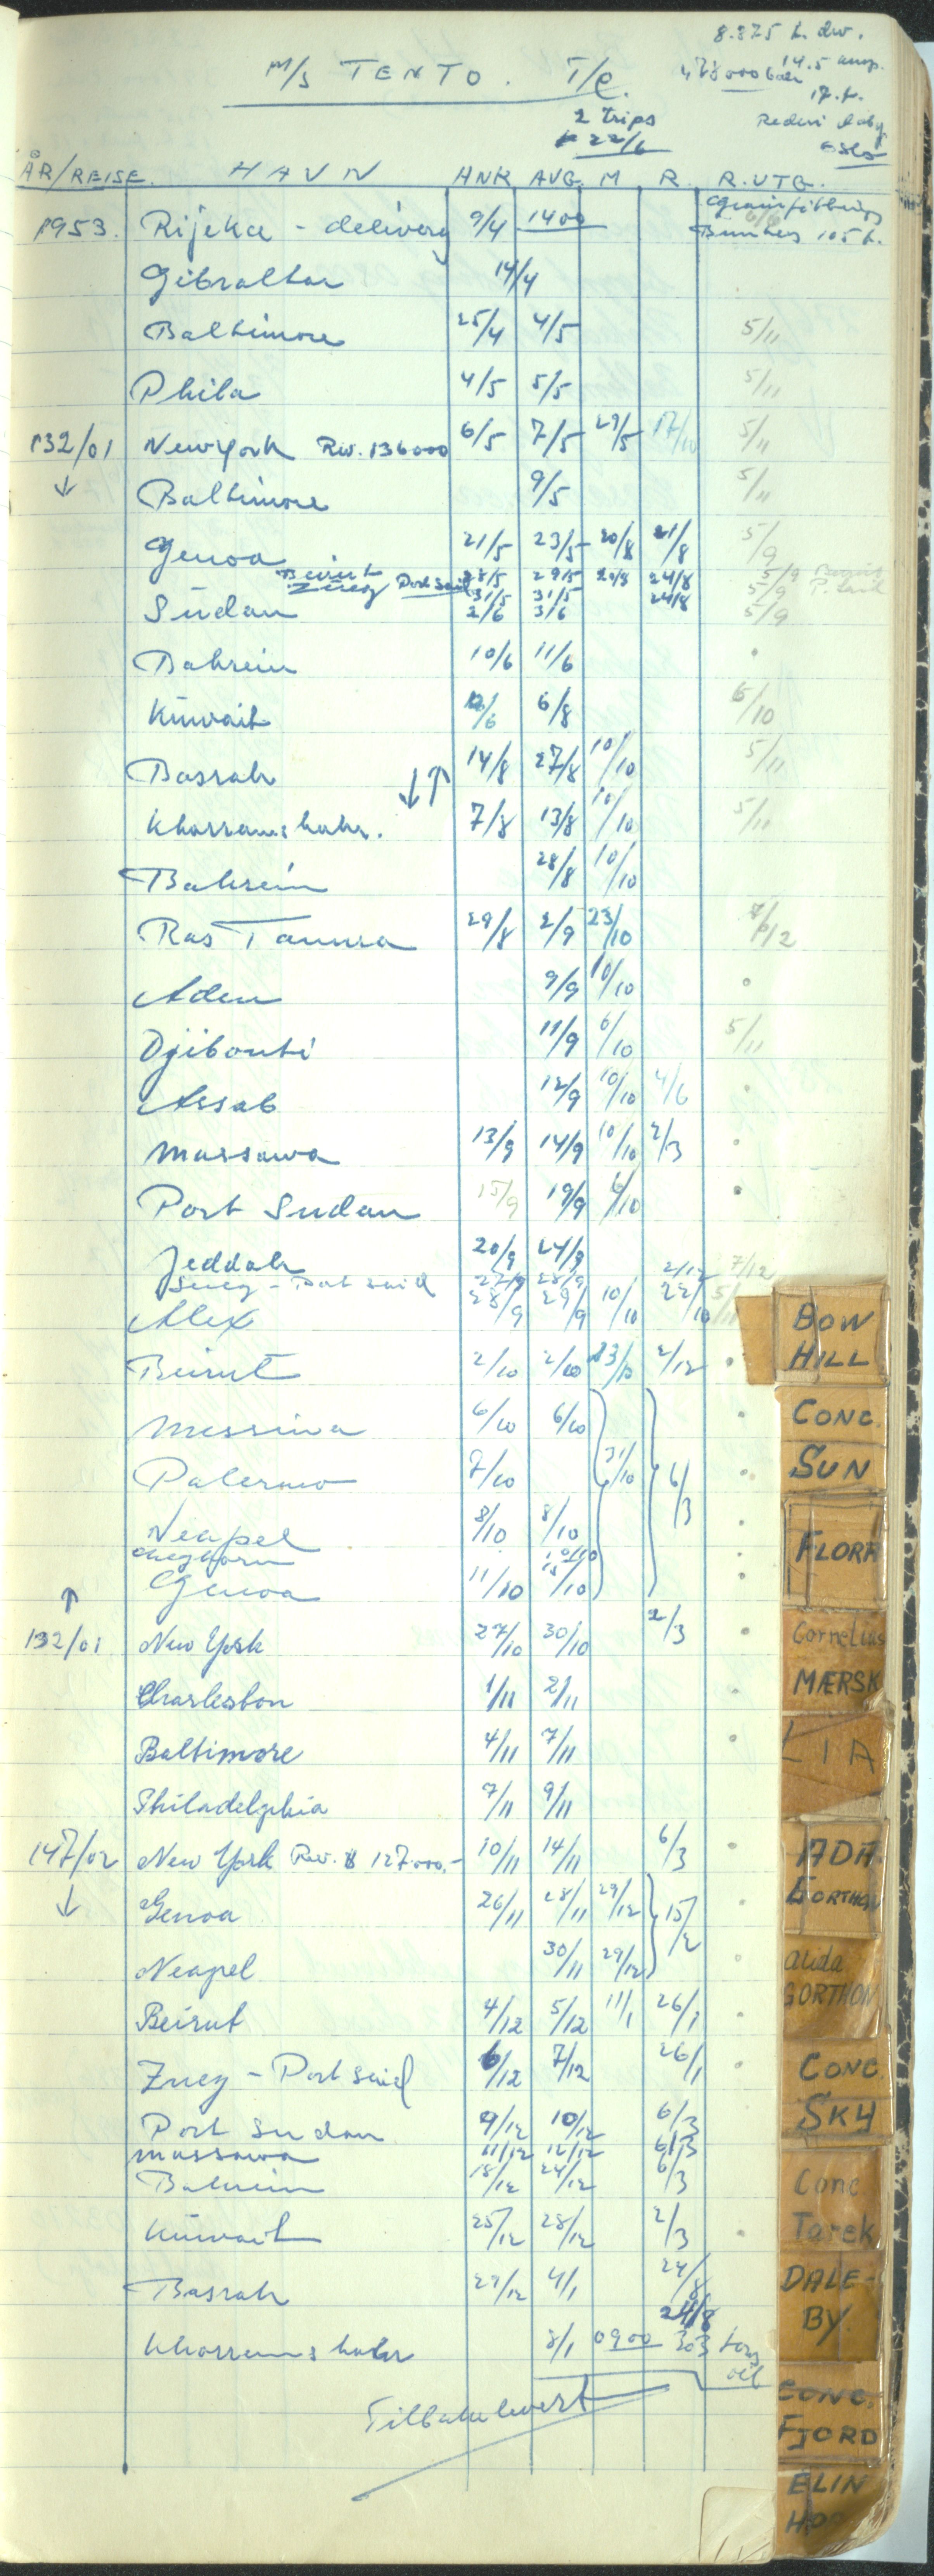 8.375 t. dw.
M/S TENTO. T/C.
14.5 knop.
17. t.
2 trips
22/6
Rederi
Oslo
ÅR/REISE. HAVN ANK AVG. M R. R.UTG.
Grainfittings
1953. Rijeka - delivery 9/4 1400 Bunkers 105 t.
Gibraltar 14/4
Baltimore 25/4 4/5 5/11
Phila 4/5 5/5 5/11
132/01 New York Rev. 136000 6/5 7/5 29/5 17/10 5/11
↓ Baltimore 9/5 5/11
Genoa 21/5 23/5 20/8 21/8 5/9
Beirut 28/5 29/5 20/8 24/8 5/9
Zuez Port Said 31/5 31/5 24/8 5/9 P. Said
Sudan 2/6 3/6 5/9
Bahrein 10/6 11/6
Kuwait 12/6 6/8 6/10
Basrah 14/8 27/8 10/10 5/11
↓↑
Khorramshahr. 7/8 13/8 10/10 5/11
Bahrein 28/8 10/10
Ras Tanura 29/8 2/9 23/10 7/12
Aden 9/9 10/10
Djibouti 11/9 6/10 5/11
Assab 12/9 10/10 4/6
Massawa 13/9 14/9 10/10 2/3
Port Sudan 15/9 19/9 6/10
Jeddah 20/9 24/9 2/12 7/12
Suez - Port Said 27/9 28/9
Alex 28/9 29/9 10/10 22/10 5/11
Beirut 2/10 2/10 23/10 2/12
Messina 6/10 6/10
Palermo 7/10 31/10 6/3
Neapel 8/10 8/10
Leghorn 10/10
Genoa 11/10 15/10
↑
132/01 New York 27/10 30/10 2/3
Charleston 1/11 2/11
Baltimore 4/11 7/11
Philadelphia 7/11 9/11
147/02 New York Rev. $ 127000.- 10/11 14/11 6/3
↓ Genoa 26/11 28/11 29/12 15/2
Neapel 30/11 29/12
Beirut 4/12 5/12 11/1 26/1
Zuez - Port Said 6/12 7/12 26/1
Port Sudan 9/12 10/12 6/3
Massawa 11/12 12/12 6/3
Bahrein 18/12 24/12 6/3
Kuwait 25/12 28/12 2/3
Basrah 29/12 4/1 24/8
24/8
Khorramshahr 8/1 0900 303 tons
oil
Tilbakelevert
BOW
HILL
CONC.
SUN
FLORA
Cornelius
MÆRSK
LIA
ADA
GORTHON
Alida
GORTHON
CONC.
SKY
Conc
Tarek
DALE-
BY.
CONC.
FJORD
ELIN